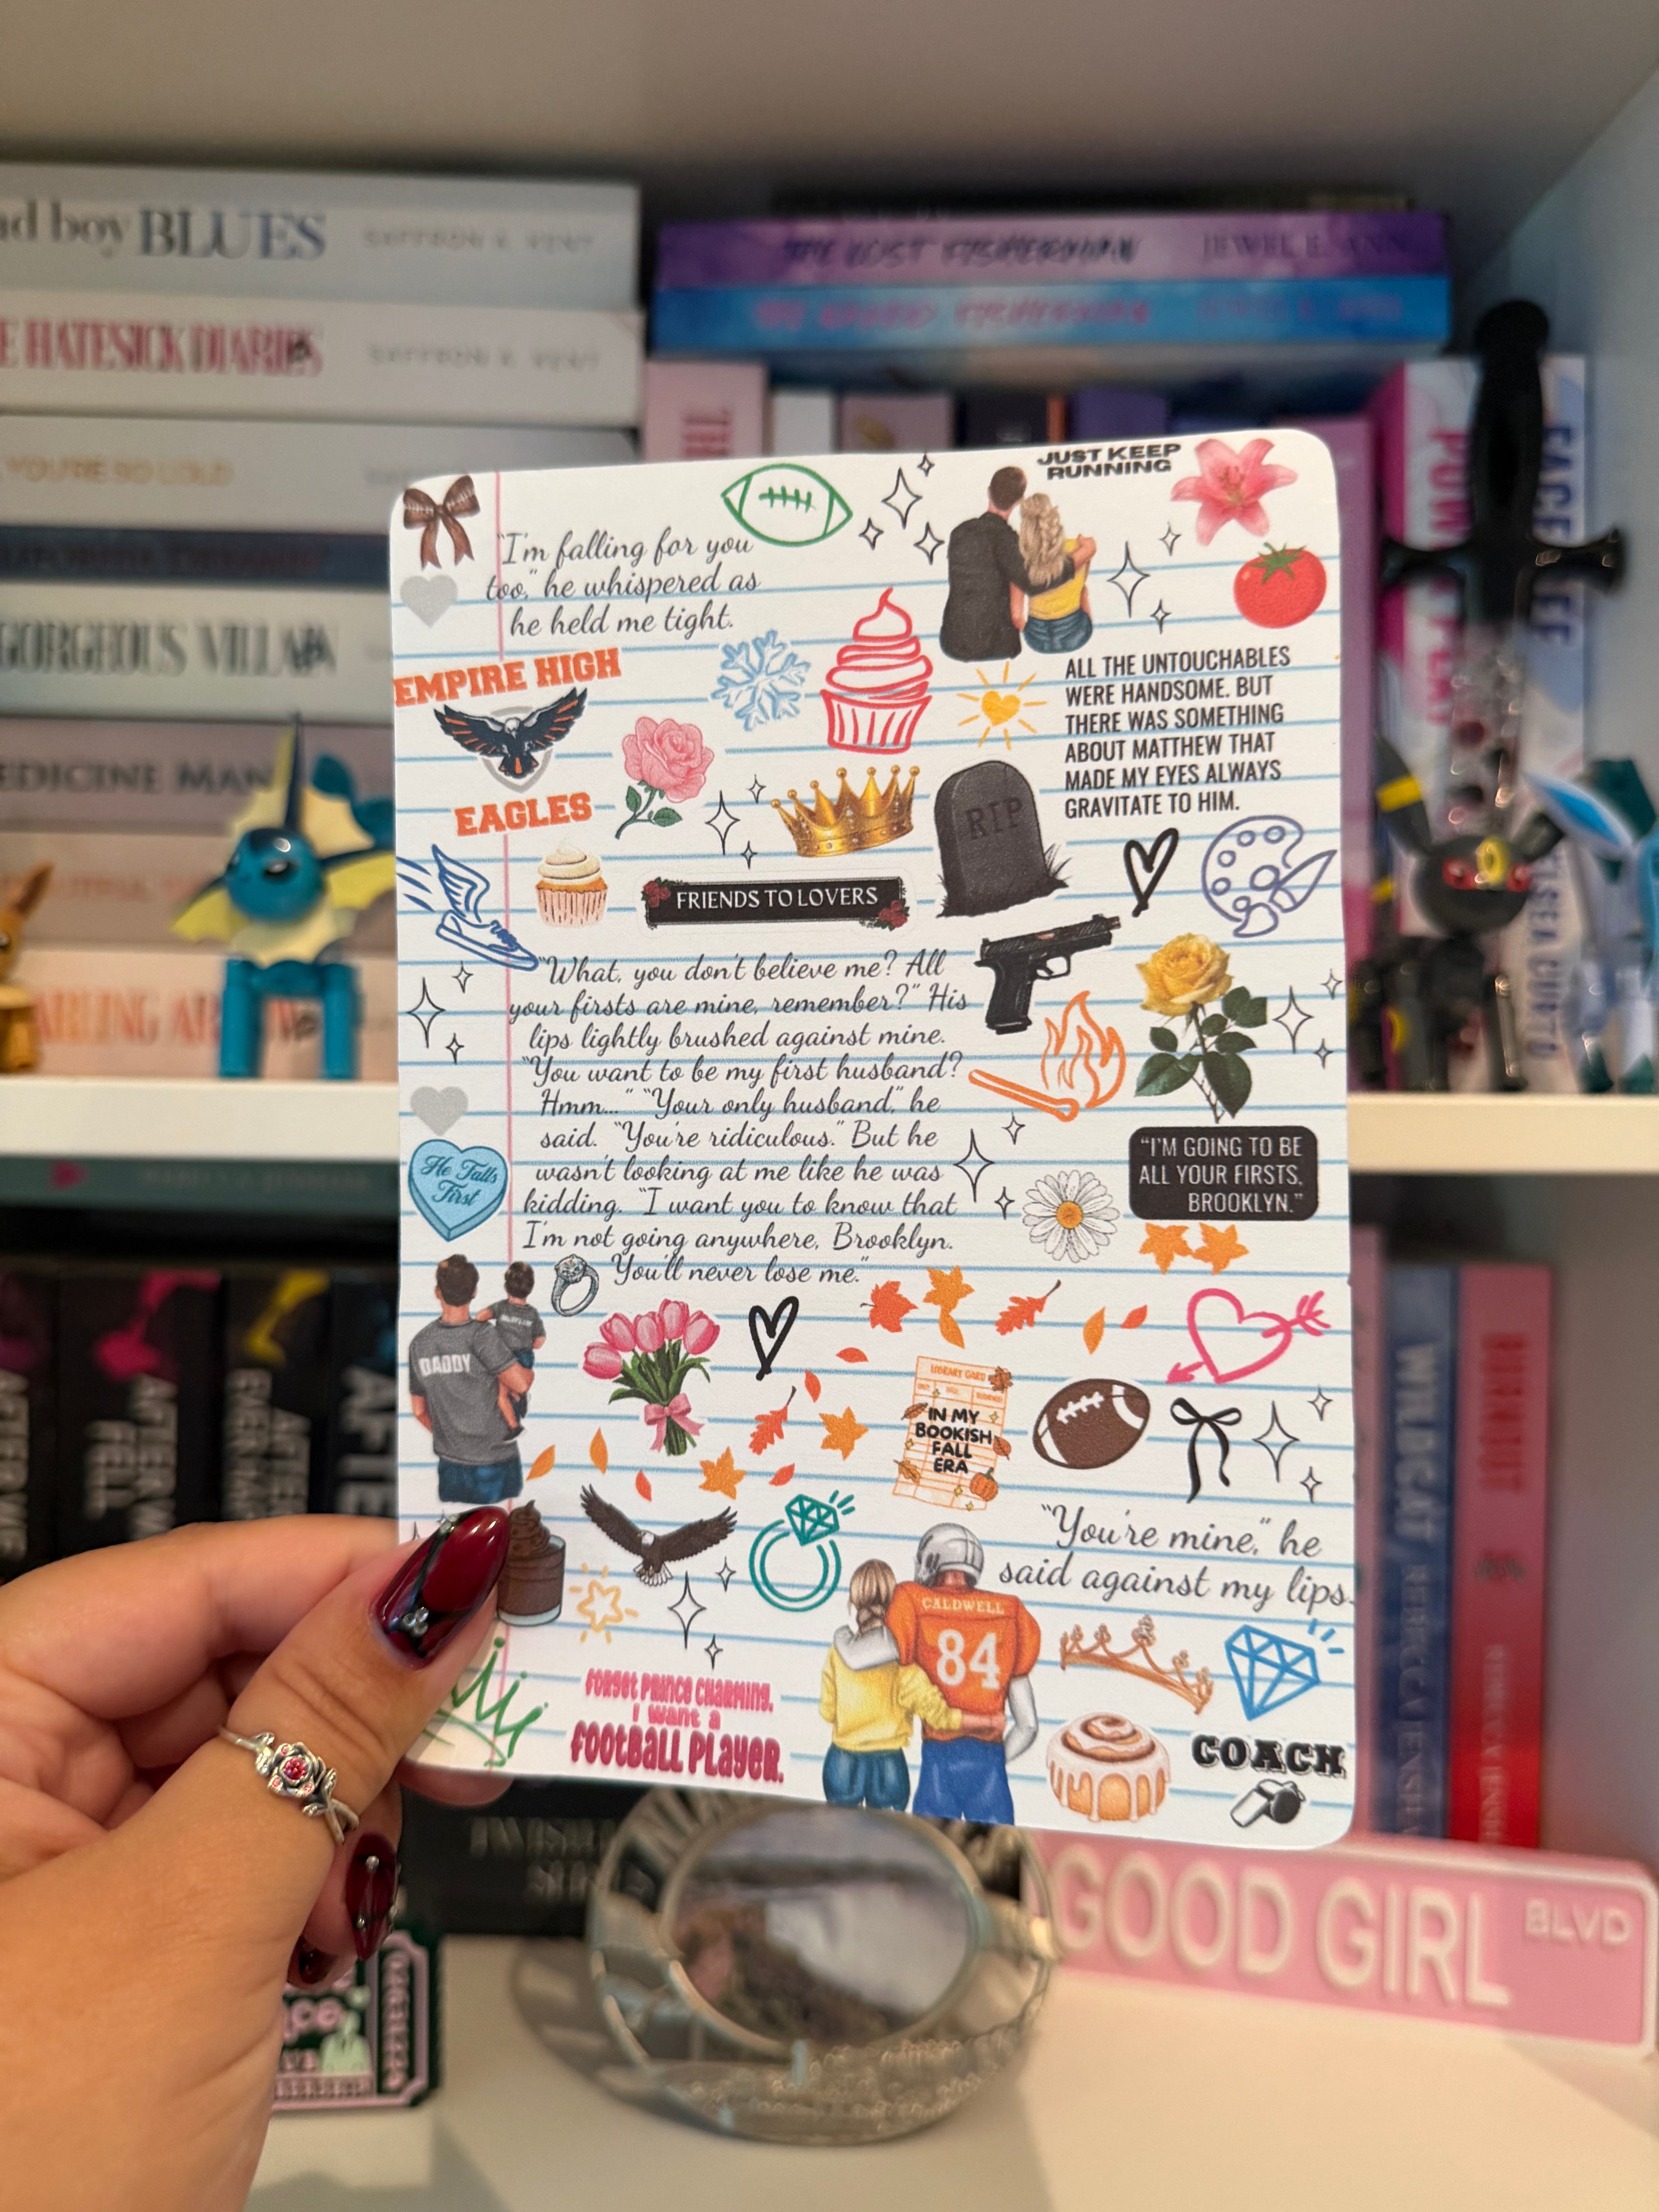 BLUES
SAFFRON A. KENT
HATESICK DIARIES
SAFFRON A. KENT
YOU'RE SO COLD
GORGEOUS VILLAIN
MEDICINE MAN
THE LOST FISHERMAN JEWEL E. ANN
THE
JUST KEEP
RUNNING
"I'm falling for you
too," he whispered as
he held me tight.
EMPIRE HIGH
EAGLES
ALL THE UNTOUCHABLES
WERE HANDSOME. BUT
THERE WAS SOMETHING
ABOUT MATTHEW THAT
MADE MY EYES ALWAYS
GRAVITATE TO HIM.
RIP
FRIENDS TO LOVERS
"What, you don't believe me? All
your firsts are mine, remember?" His
lips lightly brushed against mine.
"You want to be my first husband?
Hmm..." "Your only husband," he
said. "You're ridiculous." But he
wasn't looking at me like he was
kidding. "I want you to know that
I'm not going anywhere, Brooklyn.
You'll never lose me."
He Falls
First
"I'M GOING TO BE
ALL YOUR FIRSTS,
BROOKLYN."
DADDY
LIBRARY CARD
IN MY
BOOKISH
FALL
ERA
"You're mine," he
said against my lips.
CALDWELL
84
FORGET PRINCE CHARMING,
I WANT A
FOOTBALL PLAYER.
COACH
AFTER WE
FELL
WILDCAT REBECCA JENSHAK
GOOD GIRL BLVD